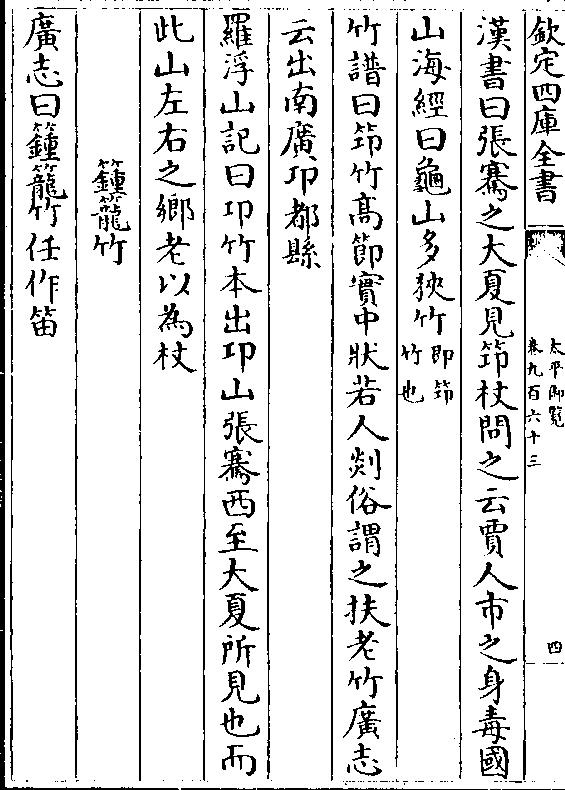 欽定四庫全書
太平御覽
卷九百六十三
四
漢書曰張騫之大夏見筇杖問之云賈人市之身毒國
山海經曰龜山多狹竹即筇竹也
竹譜曰筇竹髙節實中狀若人剡俗謂之扶老竹廣志
云出南廣卭都縣
羅浮山記曰卭竹本出卭山張騫西至大夏所見也而
此山左右之鄉老以為杖
籦籠竹
廣志曰籦籠竹任作笛